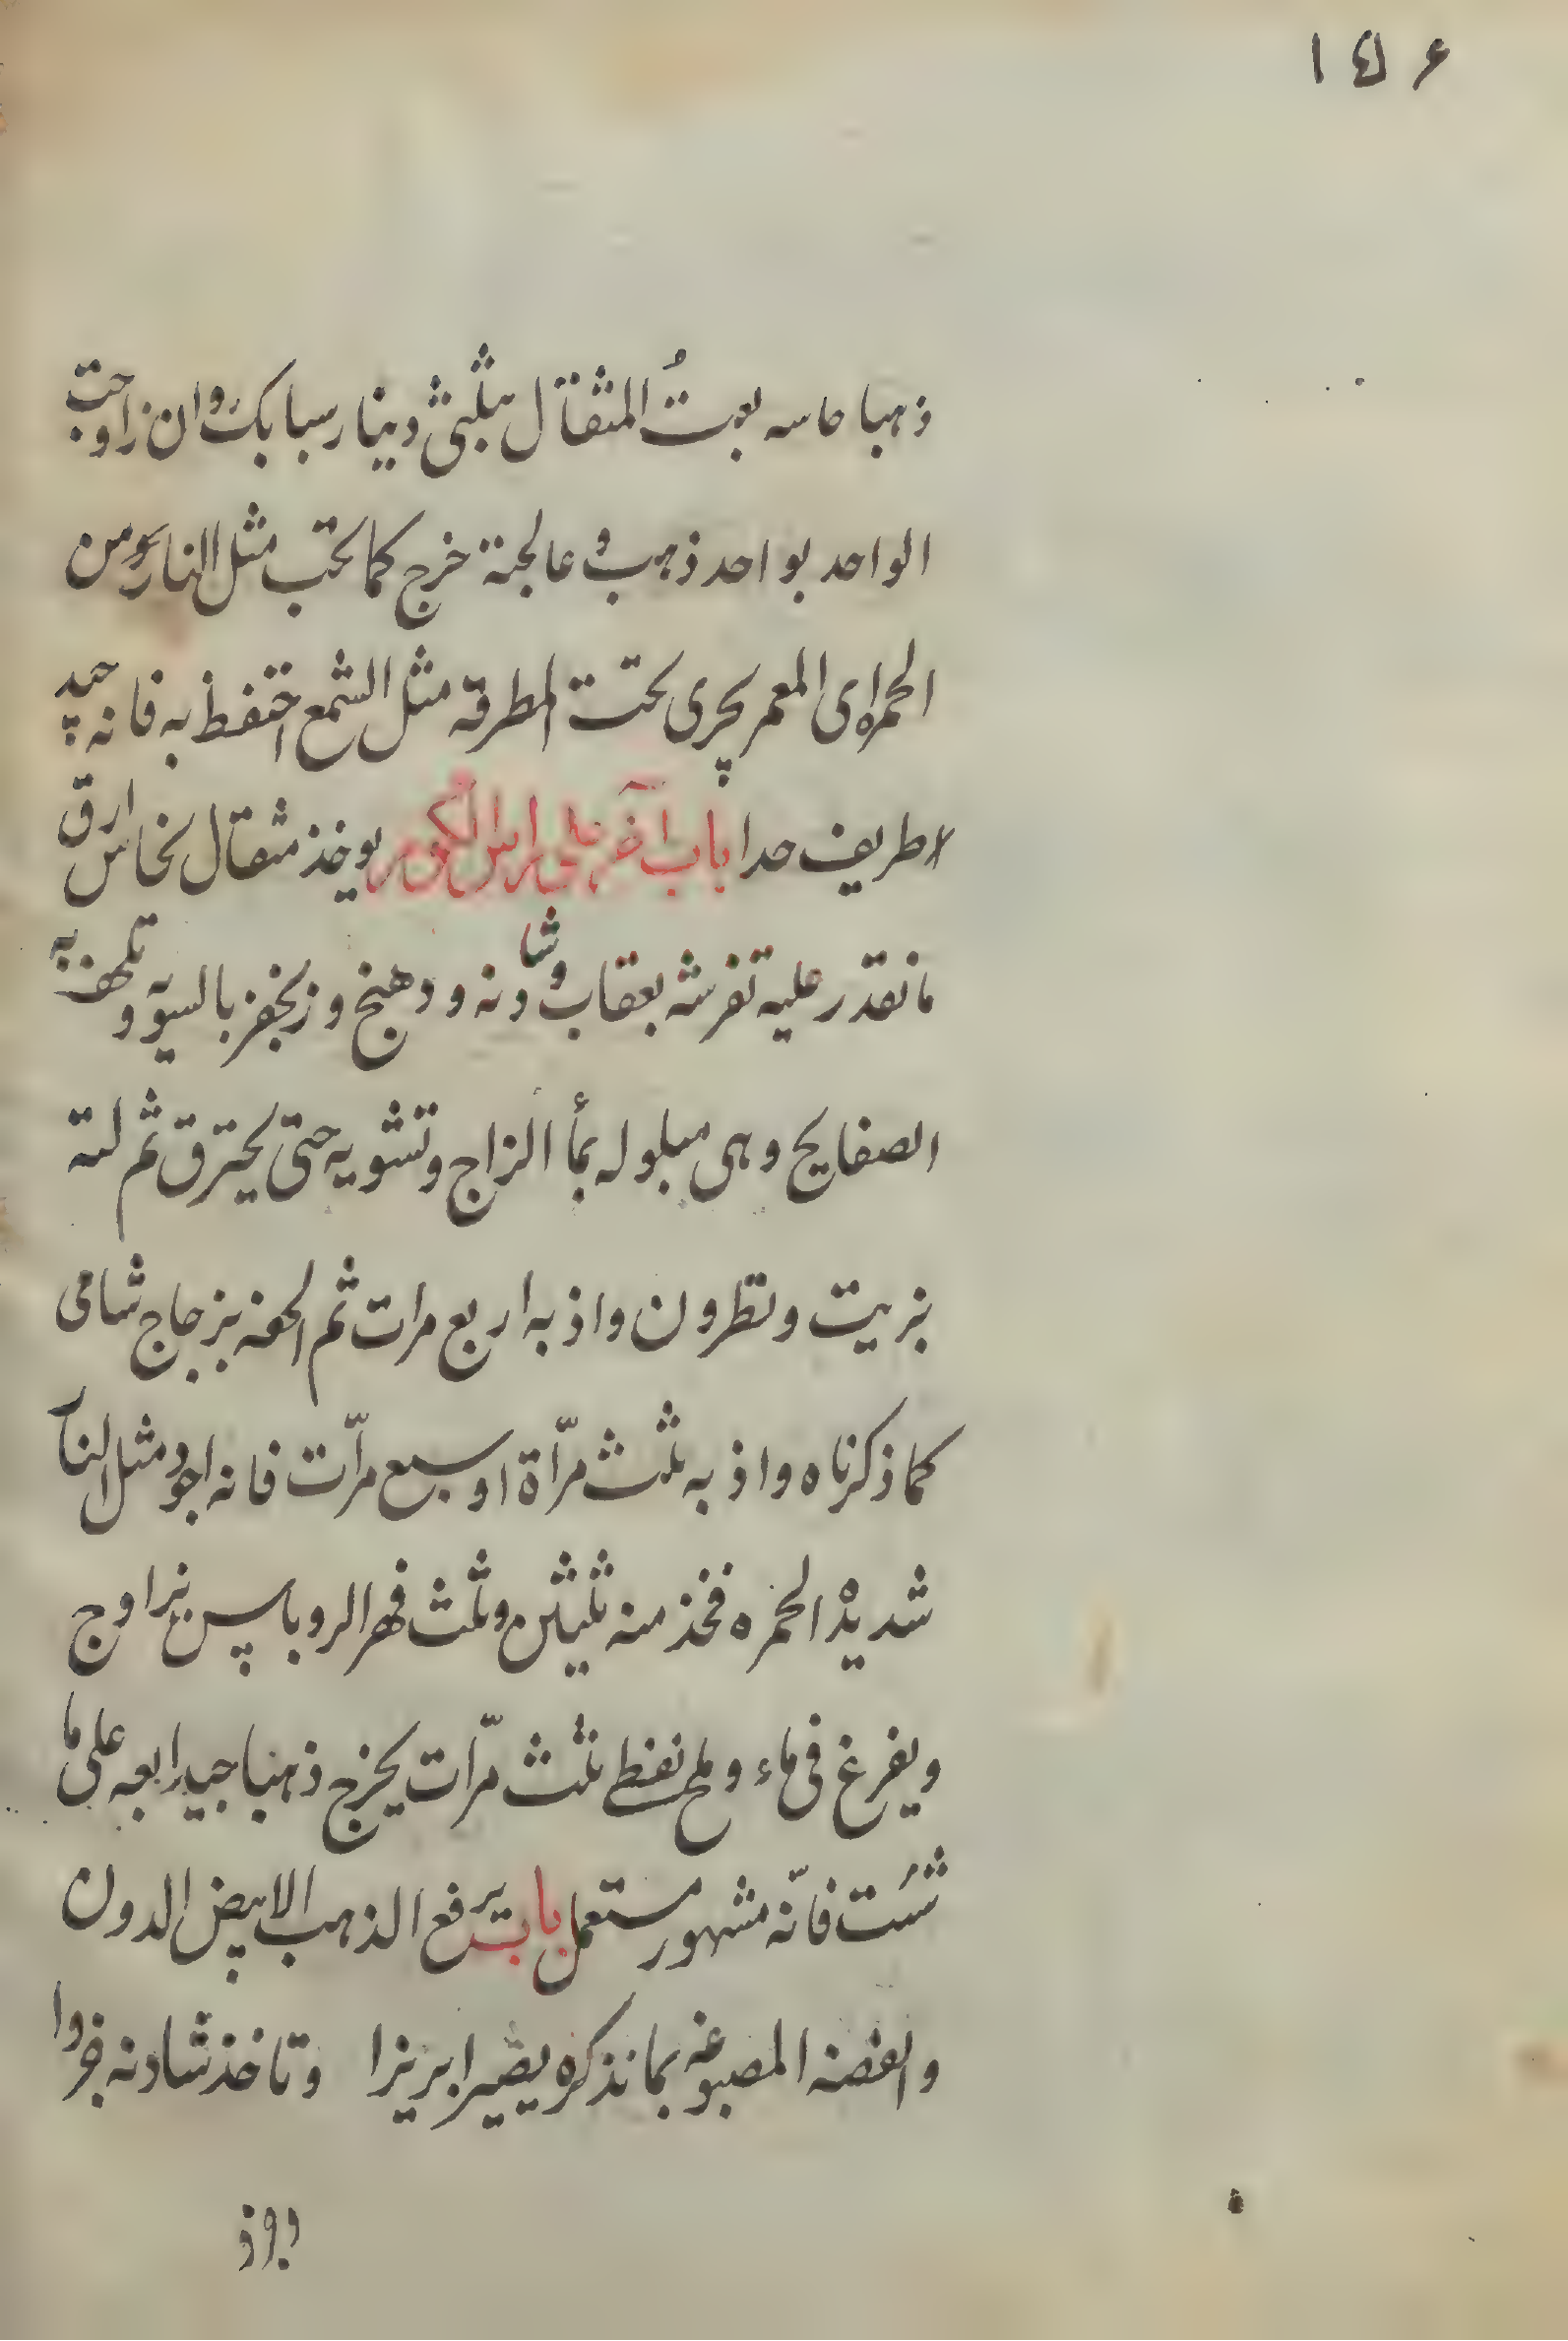 ١٤٦
ذهبا حاسه بعتُ المثقال بثلثى دينار سبابك وان زاوجت
الواحد بواحد ذهب وعالجته خرج كما تحب مثل النار ومن
الحمره اى المعمر يجرى تحت المطرقه مثل الشمع احتفظ به فانه جيد
طريف جدا باب آخر على راس الكوم يوخذ مثقال نحاس ارق
ما تقدر عليه تفرشه بعقاب وشادونه ودهنج وزنجفر بالسويه وتلهف به
الصفايح وهى مبلوله بمأ الزاج وتشويه حتى يحترق ثم لته
بزيت ونطرون واذبه اربع مرات ثم الحقه بزجاج شامى
كما ذكرناه واذبه ثلث مرّاة او سبع مرّات فانه اجود مثل النآر
شديد الحمره فخذ منه ثلثين وثلث فهر الروباس يزاوج
ويفرغ فى ماء وملح نفطى ثلث مرّات يخرج ذهبا جيدا بعه على ما
شئت فانّه مشهور مستعمل باب يرفع الذهب الابيض الدون
والفضه المصبوغه بما نذكره يصير ابريزا وتاخذ شادنه جزوا